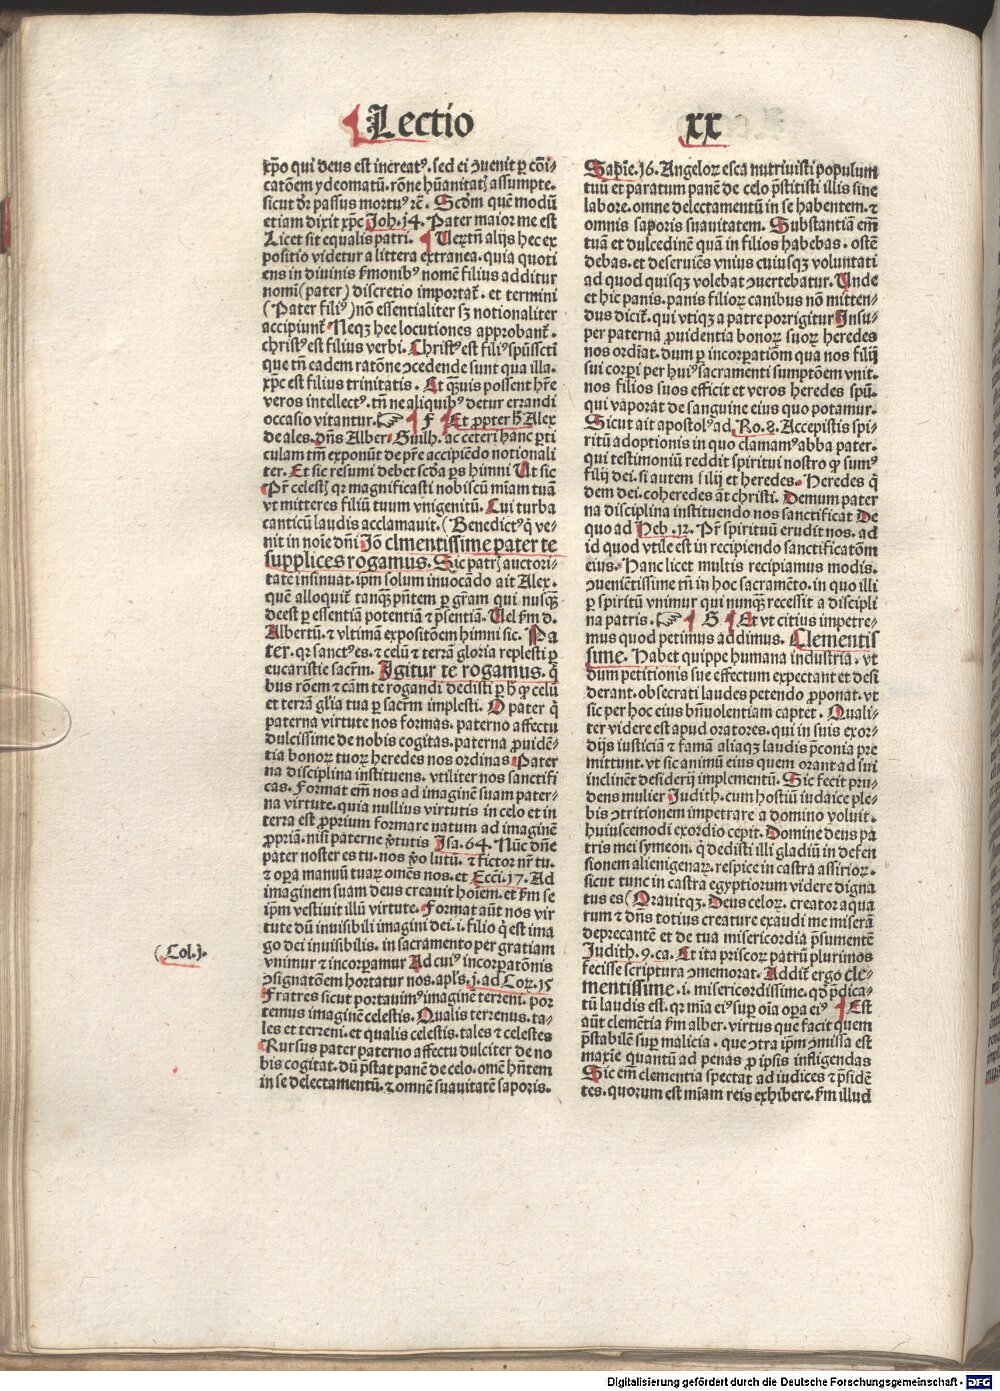 Lectio xx
xp̄o qui deus est increatꝰ. sed ei ↄuenit ꝑ cōi⸗
catōem ydeomatū. rōne hūanitatꝭ assumpte.
sicut d̄r passus mortuꝰ ⁊c̄. Scd̄m quē modū
etiam dixit xp̄c Joh. 14. Pater maior me est
Licet sit equalis patri. ¶ Uertn̄ alijs hec ex
positio videtur a littera extranea. quia quoti
ens in diuinis ẜmonibꝰ nomē filius additur
nomī (pater) discretio importat᷑. et termini
(Pater filiꝰ) nō essentialiter sꝫ notionaliter
accipiunt᷑ Neqꝫ hee locutiones approbant᷑.
christꝰ est filius verbi. Christꝰ est filiꝰ sp̄ussctī
que tn̄ eadem ratōne ↄcedende sunt qua illa.
xp̄c est filius trinitatis. Et qꝫuis possent hr̄e
veros intellectꝰ. tn̄ ne aliquibꝰ detur errandi
occasio vitantur. ☞ ¶ F ¶ Et ꝓpter h̄ Alex
de ales. dn̄s Alber. Guilh. ac ceteri hanc ꝑti
culam tm̄ exponūt de pr̄e accipiēdo notionali
ter. Et sic resumi debet scd̄a ꝑs himni Ut sic
Pr̄ celestꝭ qꝛ magnificasti nobiscū mīam tuā
vt mitteres filiū tuum vnigenitū. Cui turba
canticū laudis acclamauit. (Benedictꝰ q̇ ve⸗
nit in noīe dn̄i Jō clmentissime pater te
supplices rogamus. Sic patrꝭ auctori⸗
tate insinuat. ip̄m solum inuocādo ait Alex.
quē alloquit᷑ tanqꝫ pn̄tem ꝑ gr̄am qui nusqꝫ
deest ꝑ essentiā potentiā ⁊ p̄sentiā. Uel ẜm d.
Albertū. ⁊ vltimā expositōem himni sic. Pa
ter. qꝛ sanctꝰ es. ⁊ celū ⁊ terrā gloria replesti ꝑ
eucaristie sacr̄m. Igitur te rogamus. q̇
bus rōem ⁊ cām te rogandi dedisti ꝑ h̄ ꝙ celū
et terrā gl̄ia tua ꝑ sacr̄m implesti. O pater q̇
paterna virtute nos formas. paterno affectu
dulcissime de nobis cogitas. paterna ꝓuidē⸗
tia bonoꝝ tuoꝝ heredes nos ordinas Pater
na disciplina instituens. vtiliter nos sanctifi
cas. Format em̄ nos ad imaginē suam pater⸗
na virtute. quia nullius virtutis in celo et in
terra est ꝓprium formare natum ad imaginē
ꝓpriā. nisi paterne v̄tutis Isa. 64. Nūc dn̄e
pater noster es tu. nos v̄o lutū. ⁊ fictor nr̄ tu.
⁊ oꝑa manuū tuaꝝ om̄es nos. et Ecci. 17. Ad
imaginem suam deus creauit hoīem. et ẜm se
ip̄m vestiuit illū virtute. Format aūt nos vir
tute dū inuisibili imagini dei. i. filio q̇ est ima
go dei inuisibilis. in sacramento per gratiam
vnimur ⁊ incorꝑamur Ad cuiꝰ incorꝑatōnis
ↄsignatōem hortatur nos. apl̄s. j. ad Coꝝ. 15
Fratres sicut portauimꝰ imaginē terreni. por
temus imaginē celestis. Qualis terrenus. ta⸗
les et terreni. et qualis celestis. tales ⁊ celestes
Rursus pater paterno affectu dulciter de no
bis cogitat. dū p̄stat panē de celo. omē hn̄tem
in se delectamentū. ⁊ omnē suauitatē saporis.
(Col. j.
Sapīe. 16. Angeloꝝ esca nutriuisti populum
tuū et paratum panē de celo p̄stitisti illis sine
labore. omne delectamentū in se habentem. ⁊
omnis saporis suauitatem. Substantiam em̄
tuā et dulcedinē quā in filios habebas. ostē
debas. et deseruiēs vnius cuiusqꝫ voluntati
ad quod quisqꝫ volebat ↄuertebatur. Unde
et hic panis. panis filioꝝ canibus nō mitten⸗
dus dicit᷑. qui vtiqꝫ a patre porrigitur Insu⸗
per paterna ꝓuidentia bonoꝝ suoꝝ heredes
nos ordīat. dum ꝑ incorꝑatiōm qua nos filij
sui corꝑi per huiꝰ sacramenti sumptōem vnit.
nos filios suos efficit et veros heredes spū.
qui vaporat de sanguine eius quo potamur.
Sicut ait apostolꝰ ad Ro. 8. Accepistis spi⸗
ritū adoptionis in quo clamamꝰ abba pater.
qui testimoniū reddit spiritui nostro ꝙ sumꝰ
filij dei. si autem filij et heredes. Heredes q̇
dem dei. coheredes āt christi. Demum pater
na disciplina instituendo nos sanctificat De
quo ad Heb. 12. Pr̄ spirituū erudit nos. ad
id quod vtile est in recipiendo sanctificatōm
eius. Hanc licet multis recipiamus modis.
ↄuenientissime tn̄ in hoc sacramēto. in quo illi
ꝑ spiritū vnimur qui nunqꝫ recessit a discipli
na patris. ☞ ¶ G ¶ Et vt citius impetre⸗
mus quod petimus addimus. Clementis
sime. Habet quippe humana industria. vt
dum petitionis sue effectum expectant et desi
derant. obsecrati laudes petendo ꝓponat. vt
sic per hoc eius bn̄uolentiam captet. Quali⸗
ter videre est apud oratores. qui in suis exor⸗
dijs iusticiā ⁊ famā aliaqꝫ laudis p̄conia pre
mittunt. vt sic animū eius quem orant ad sui
inclinēt desiderij implementū. Sic fecit pru⸗
dens mulier Judith. cum hostiū iudaice ple⸗
bis ↄtritionem impetrare a domino voluit.
huiuscemodi exordio cepit. Domine deus pa
tris mei symeon. q̇ dedisti illi gladiū in defen
sionem alienigenaꝝ. respice in castra assirioꝝ.
sicut tunc in castra egyptiorum videre digna
tus es (Orauitqꝫ. Deus celoꝝ. creator aqua
rum ⁊ dn̄s totius creature exaudi me miserā
deprecantē et de tua misericordia p̄sumentē
Judith. 9. ca. Et ita priscoꝝ patrū plurimos
fecisse scriptura ↄmemorat. Addit᷑ ergo cle⸗
mentissime. i. misericordissime. qd̄ p̄dica⸗
tū laudis est. qꝛ mīa eiꝰ suꝑ oīa oꝑa eiꝰ ¶ Est
aūt clemētia ẜm alber. virtus que facit quem
p̄stabilē suꝑ malicia. que ↄtra ip̄m ↄmissa est
maxīe quantū ad penas ꝓ ipsis infligendas
Sic em̄ clementia spectat ad iudices ⁊ p̄sidē
tes. quorum est mīam reis exhibere. ẜm illud
Digitalisierung gefördert durch die Deutsche Forschungsgemeinschaft - DFG